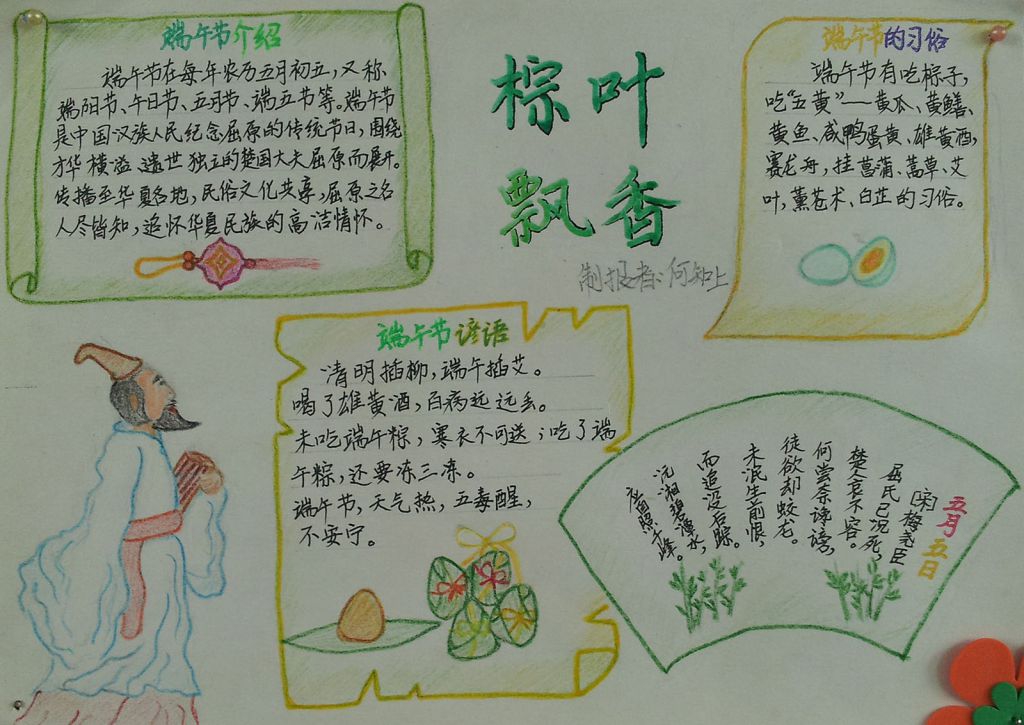 端午节介绍
端午节在每年农历五月初五，又称
端阳节、午日节、五月节、端五节等。端午节
是中国汉族人民纪念屈原的传统节日，围绕
才华横溢、遗世独立的楚国大夫屈原而展开。
传播至华夏各地，民俗文化共享，屈原之名
人尽皆知，追怀华夏民族的高洁情怀。
棕叶
飘香
制报者：何知上
端午节的习俗
端午节有吃棕子，
吃“五黄”——黄瓜、黄鳝、
黄鱼、咸鸭蛋黄、雄黄酒，
赛龙舟，挂菖蒲、蒿草、艾
叶，薰苍术、白芷的习俗。
端午节谚语
清明插柳，端午插艾。
喝了雄黄酒，百病远远丢。
未吃端午粽，寒衣不可送；吃了端
午粽，还要冻三冻。
端午节，天气热，五毒醒，
不安宁。
五月五日
［宋］梅尧臣
屈氏已沉死，
楚人哀不容。
何尝奈谗谤，
徒欲却蛟龙。
未泯生前恨，
而追没后踪。
沅湘碧潭水，
应照千峰。